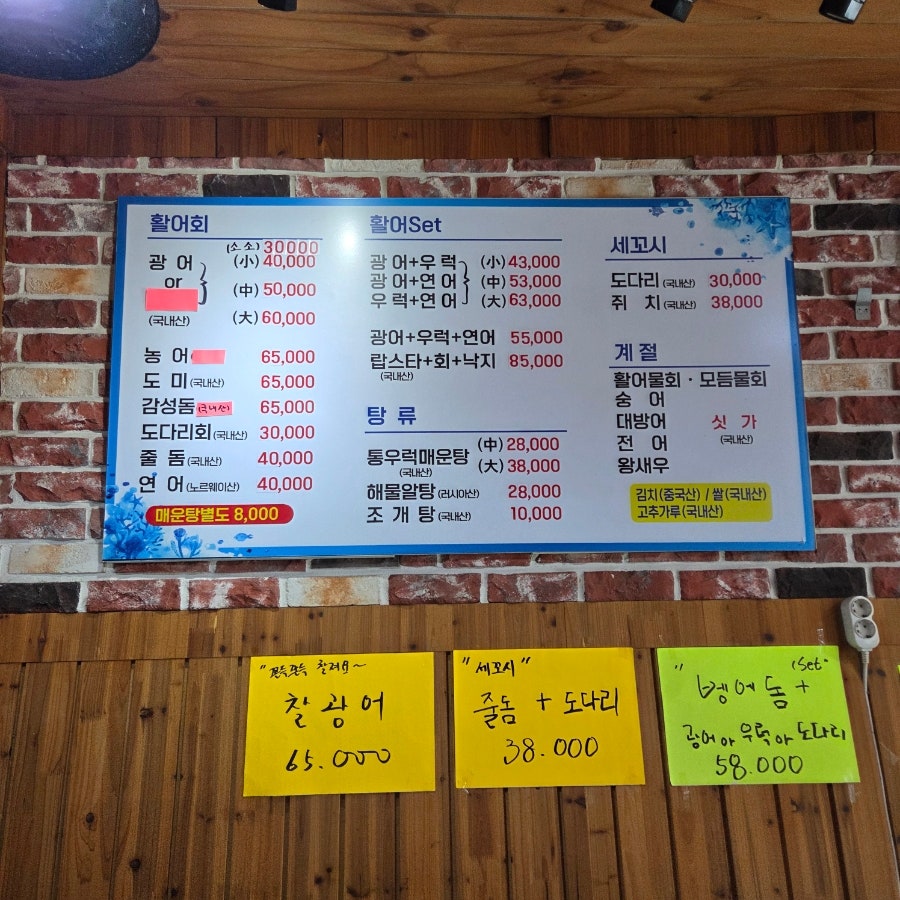 활어회
(소소) 30000
광 어 (小) 40,000
or
(中) 50,000
(국내산) (大) 60,000
농 어 65,000
도 미 (국내산) 65,000
감성돔 (국내산) 65,000
도다리회 (국내산) 30,000
줄 돔 (국내산) 40,000
연 어 (노르웨이산) 40,000
매운탕별도 8,000
활어Set
광어+우럭 (小) 43,000
광어+연어 (中) 53,000
우럭+연어 (大) 63,000
광어+우럭+연어 55,000
랍스타+회+낙지 85,000
(국내산)
탕 류
(中) 28,000
통우럭매운탕 (大) 38,000
(국내산)
해물알탕 (러시아산) 28,000
조 개 탕 (국내산) 10,000
세꼬시
도다리 (국내산) 30,000
쥐 치 (국내산) 38,000
계 절
활어물회 · 모듬물회
숭 어
대방어 싯 가
전 어 (국내산)
왕새우
김치(중국산) / 쌀(국내산)
고추가루(국내산)
찰 광 어
65.000
"세꼬시"
줄돔 + 도다리
38.000
"Set"
벵에돔 +
광어 or 우럭 or 도다리
58.000